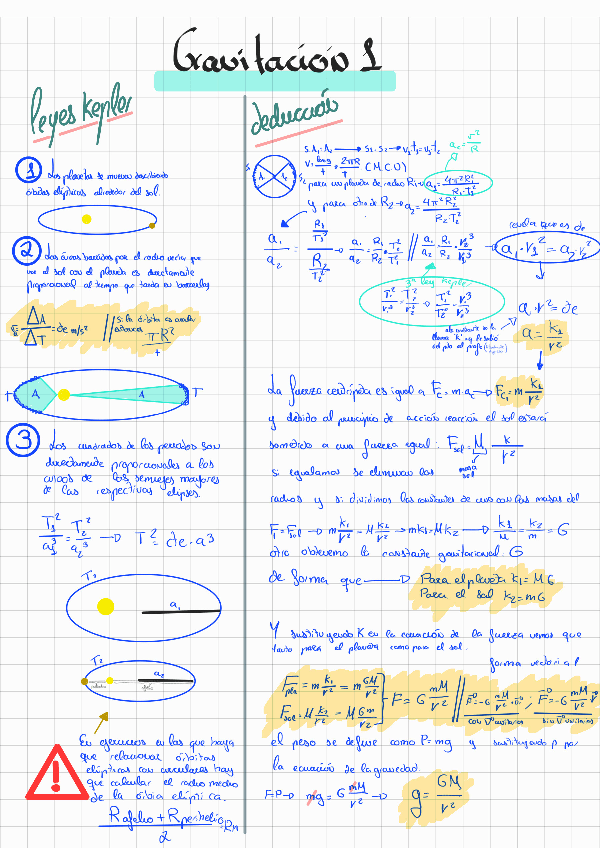 Gravitación 1
leyes Kepler
1 Los planetas se mueven describiendo
órbitas elípticas alrededor del sol.
2 Las áreas barridas por el radio vector que
une el sol con el planeta es directamente
proporcional al tiempo que tarda en barrerlas
ΔA/ΔT = cte m/s²
πR²/t
A A T
3 Los cuadrados de los periodos son
directamente proporcionales a los
cubos de los semiejes mayores
de las respectivas elipses.
T₁²/a₁³ = T₂²/a₂³ → T² = cte · a³
T₁
a₁
T₂
a₂
En ejercicios en los que haya
que relacionar órbitas
elípticas con circulares hay
que calcular el radio medio
de la órbita elíptica.
(R afelio + R perihelio)/2 = R m
deducción
v = long/t = 2πR/t (M.C.U)
a c = v²/R
para un planeta de radio R₁ → a₁ = 4π²R₁²/(R₁·T₁²)
y para otro de R₂ → a₂ = 4π²R₂²/(R₂·T₂²)
a₁/a₂
3ª ley Kepler
a₁·r₁² = a₂·r₂²
a·r² = cte
a = k₁/r²
La fuerza centrípeta es igual a F c = m·a c → F c₁ = m k₁/r²
y debido al principio de acción reacción el sol estará
sometido a una fuerza igual: F sol = M k/r²
masa
sol
si igualamos se eliminan los
radios y si dividimos las constantes de uno con las masas del
F₁ = F sol → m k₁/r² = M k₂/r² → mk₁ = Mk₂ → k₁/M = k₂/m = G
otro obtenemos la constante gravitacional G
de forma que → Para el planeta k₁ = MG
Para el sol k₂ = mG
Y sustituyendo K en la ecuación de la fuerza vemos que
tanto para el planeta como para el sol.
forma vectorial
F pla = m k₁/r² = m GM/r²
F sol = M k₂/r² = M Gm/r²
F = G mM/r²
el peso se define como P = mg y sustituyendo P por
la ecuación de la gravedad
F=P → mg = G mM/r² → g = GM/r²